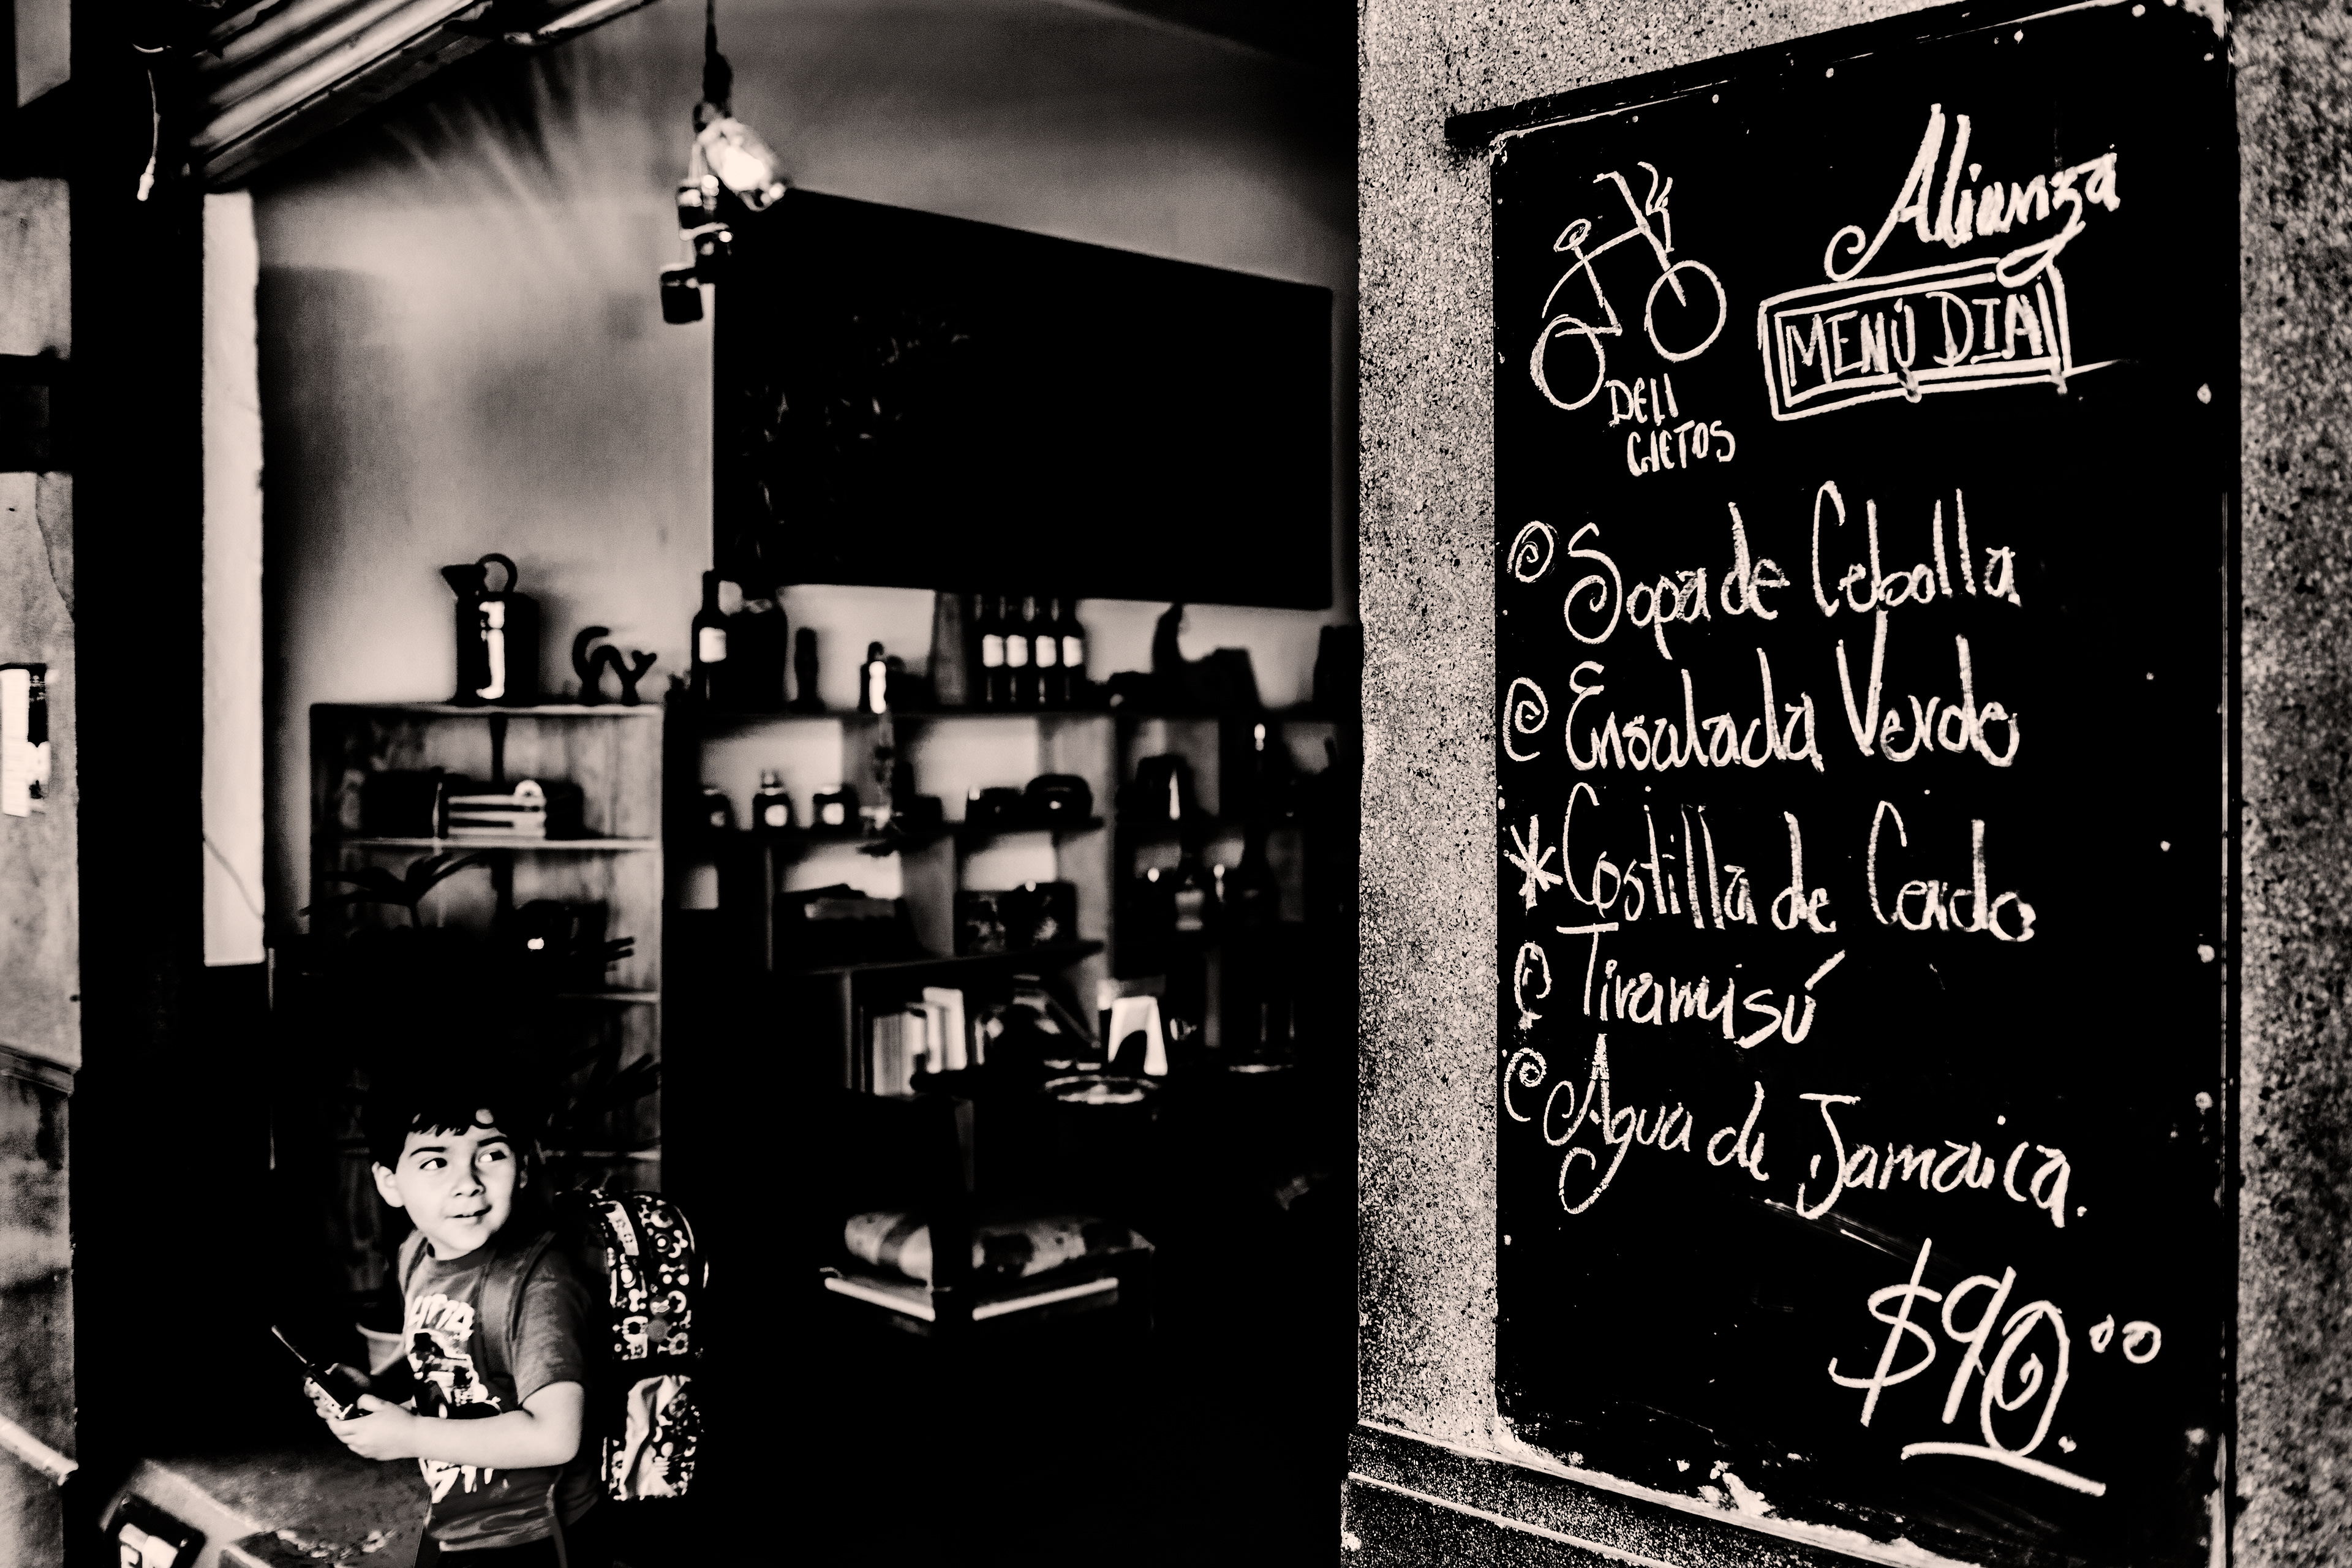 Alianza
MENÚ DIA
DELI
CLETOS
Sopa de Cebolla
Ensalada Verde
Costilla de Cerdo
Tiramisú
Agua de Jamaica.
$90.00